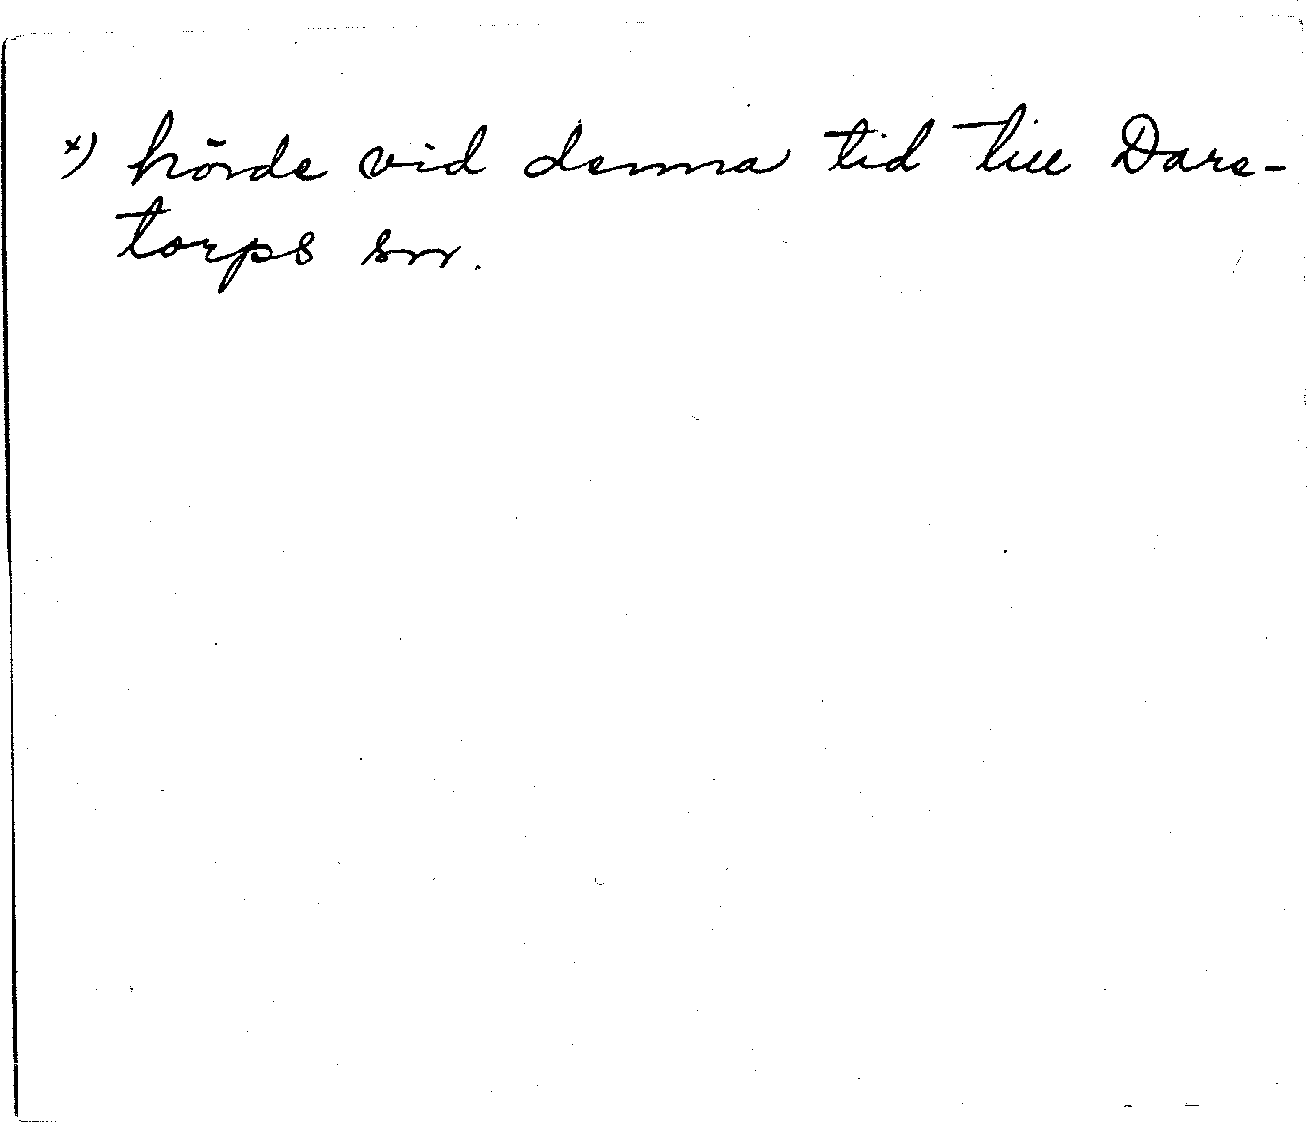 x) hörde vid denna tid till Dare-
torps sn.